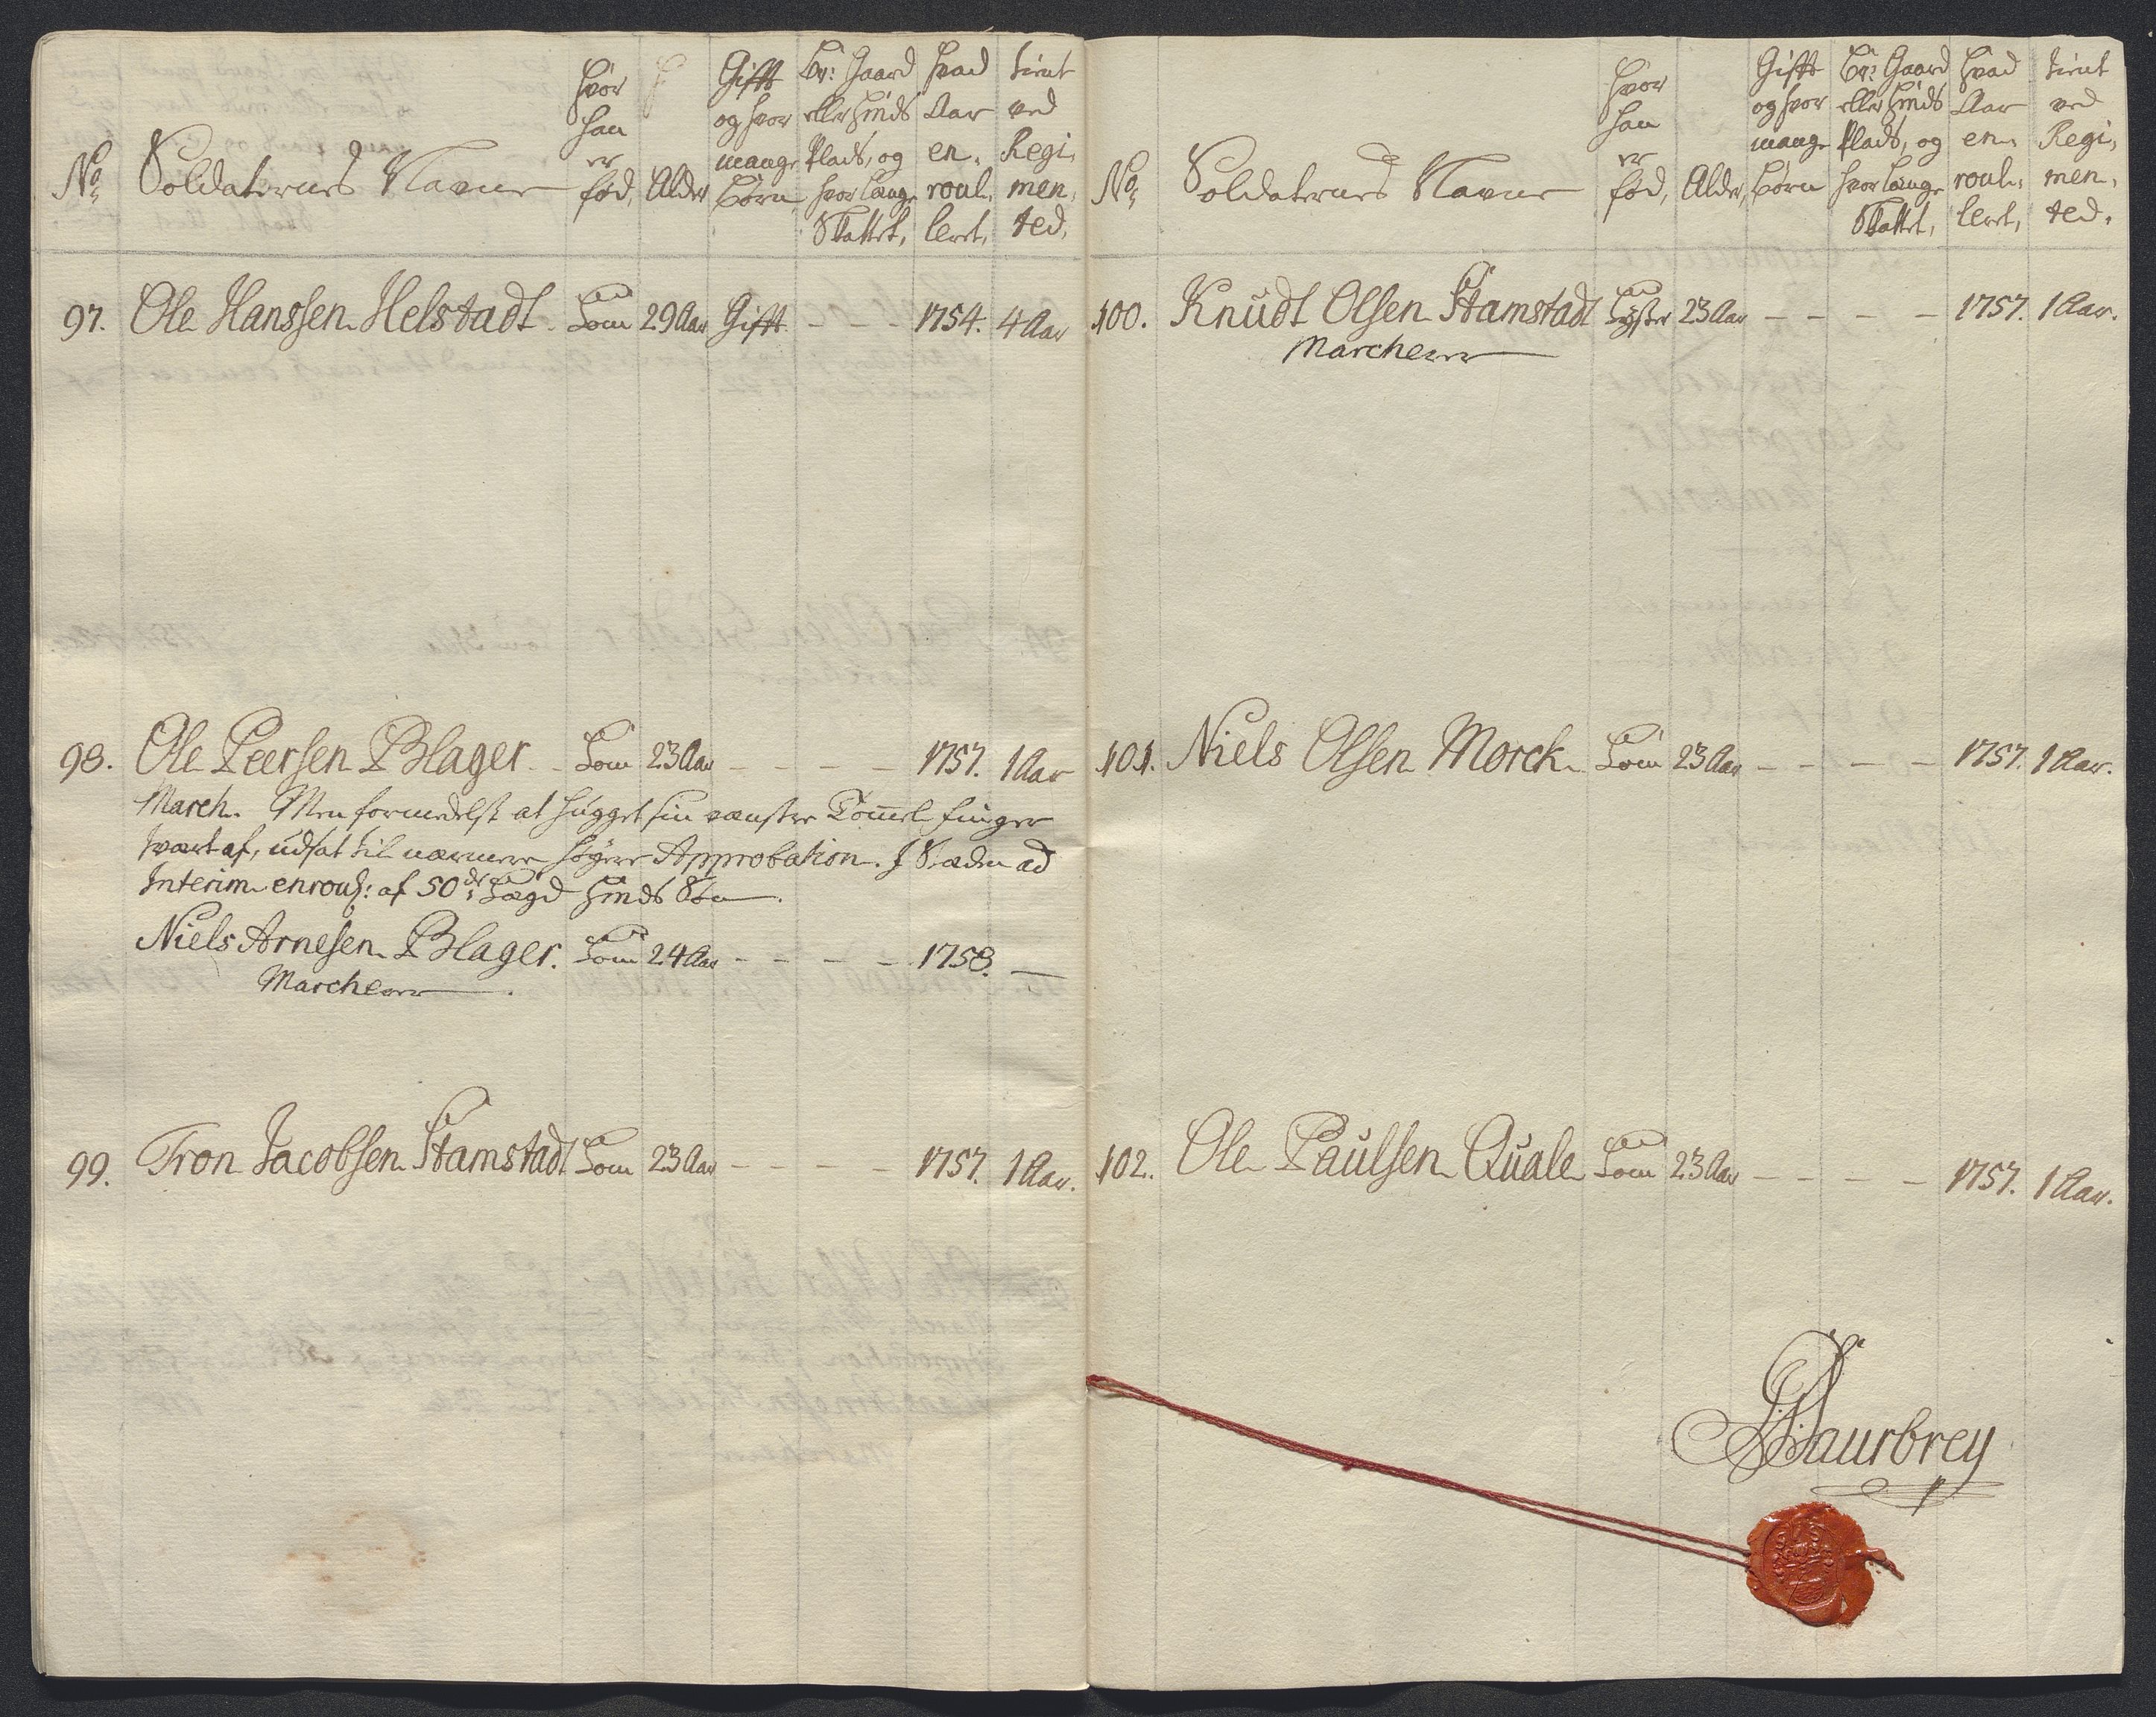 No
Soldaternes Navne
Hvor
han
er
fød,
Alder
Gifft
og hvor
mange
Børn
Br: Gaard
eller Huuds
Plads, og
hvor længe
Skattet,
Hvad
Aar
en-
roul-
leret,
tient
ved
Regi-
men-
ted.
97. Ole Hanssen Helstadt Lom 29 Aar Gifft - - - 1754. 4 Aar
98. Ole Peersen Blager Lom 23 Aar - - - - 1757. 1 Aar
March. Men formedelst at hugget sin venstre Tommel finger
tvært af, udsat til nærmere høyere Approbation. I Steden ad
Interim enroul: af 50de Lægd Huuds
Niels Arnesen Blager. Lom 24 Aar - - - - 1758. -
Marcherer
99. Tron Jacobsen Stamstad Lom 23 Aar - - - - 1757. 1 Aar.
No
Soldaternes Navne
Hvor
han
er
fød,
Alder,
Gifft
og hvor
mange
Børn
Br: Gaard
eller Huuds
Plads, og
hvor længe
Skattet,
Hvad
Aar
en-
roul-
leret,
tient
ved
Regi-
men-
ted.
100. Knudt Olsen Stamstad Lyster 23 Aar - - - - 1757. 1 Aar.
Marcherer
101. Niels Olsen Morck Lom 23 Aar - - - - 1757. 1 Aar.
102. Ole Paulsen Quale Lom 23 Aar - - - - 1757. 1 Aar.
Saurbrey